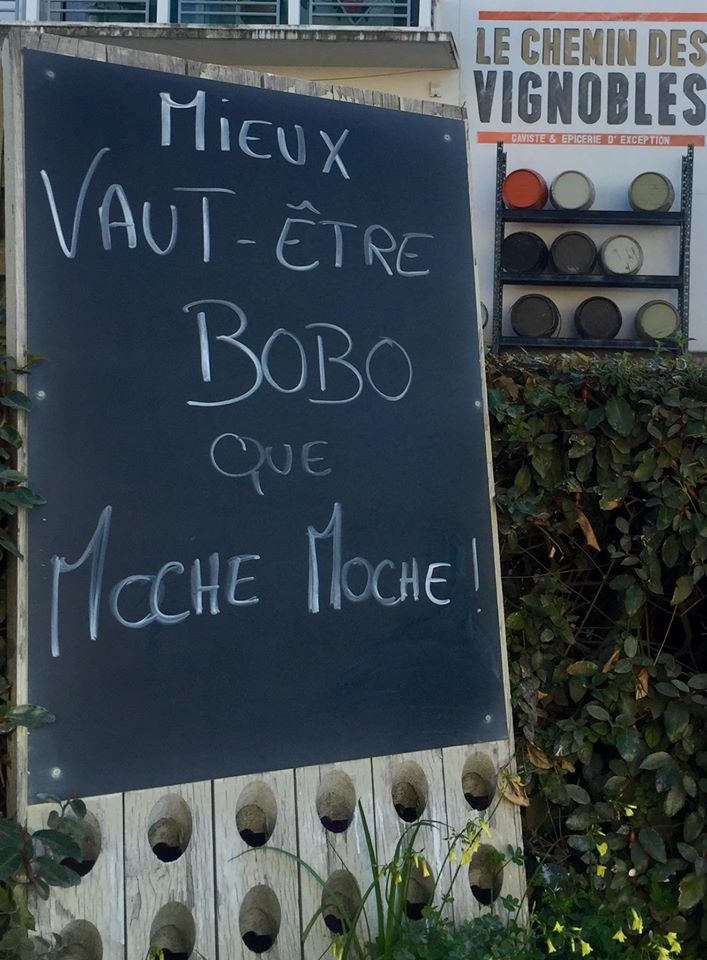 LE CHEMIN DES
VIGNOBLES
CAVISTE & EPICERIE D'EXCEPTION
MIEUX
VAUT-ÊTRE
BOBO
QUE
MOCHE MOCHE !